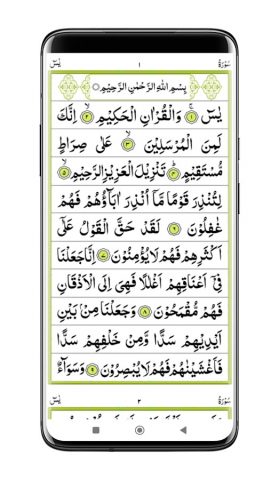 سُوْرَةُ ١ يٰسٓ
بِسْمِ اللّٰهِ الرَّحْمٰنِ الرَّحِيْمِ
يٰسٓ ۚ﴿١﴾ وَالْقُرْاٰنِ الْحَكِيْمِ ۙ﴿٢﴾ اِنَّكَ
لَمِنَ الْمُرْسَلِيْنَ ۙ﴿٣﴾ عَلٰى صِرَاطٍ
مُّسْتَقِيْمٍ ؕ﴿٤﴾ تَنْزِيْلَ الْعَزِيْزِ الرَّحِيْمِ ۙ﴿٥﴾
لِتُنْذِرَ قَوْمًا مَّاۤ اُنْذِرَ اٰبَآؤُهُمْ فَهُمْ
غٰفِلُوْنَ ﴿٦﴾ لَقَدْ حَقَّ الْقَوْلُ عَلٰۤى
اَكْثَرِهِمْ فَهُمْ لَا يُؤْمِنُوْنَ ﴿٧﴾ اِنَّا جَعَلْنَا
فِيْۤ اَعْنَاقِهِمْ اَغْلٰلًا فَهِىَ اِلَى الْاَذْقَانِ
فَهُمْ مُّقْمَحُوْنَ ﴿٨﴾ وَجَعَلْنَا مِنْۢ بَيْنِ
اَيْدِيْهِمْ سَدًّا وَّمِنْ خَلْفِهِمْ سَدًّا
فَاَغْشَيْنٰهُمْ فَهُمْ لَا يُبْصِرُوْنَ ﴿٩﴾ وَسَوَآءٌ
سُوْرَةُ ٢ يٰسٓ